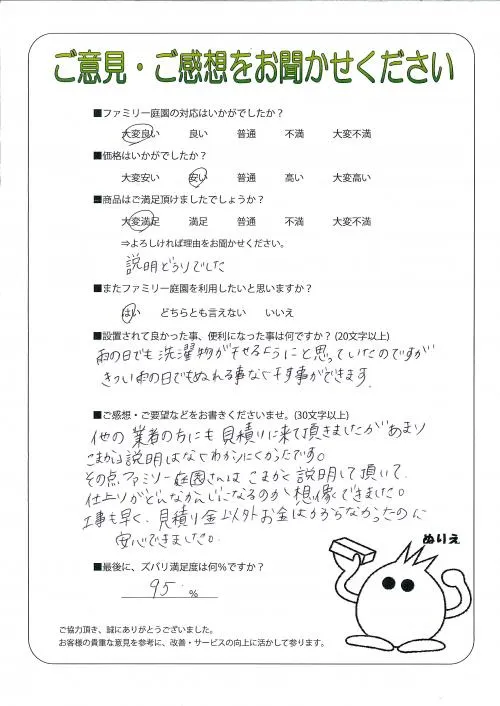 ご意見・ご感想をお聞かせください
■ファミリー庭園の対応はいかがでしたか？
大変良い 良い 普通 不満 大変不満
■価格はいかがでしたか？
大変安い 安い 普通 高い 大変高い
■商品はご満足頂けましたでしょうか？
大変満足 満足 普通 不満 大変不満
⇒よろしければ理由をお聞かせください。
説明どうりでした
■またファミリー庭園を利用したいと思いますか？
はい どちらとも言えない いいえ
■設置されて良かった事、便利になった事は何ですか？(20文字以上)
雨の日でも洗濯物が干せるようにと思っていたのですが
きつい雨の日でもぬれる事なく干す事ができます。
■ご感想・ご要望などをお書きくださいませ。(30文字以上)
他の業者の方にも見積りに来て頂きましたがあまり
こまかい説明はなくわかりにくかったです。
その点ファミリー庭園さんはこまかく説明して頂いて、
仕上りがどんなかんじになるのか想像できました。
工事も早く、見積り金以外お金はかからなかったのに
安心できました。
■最後に、ズバリ満足度は何％ですか？
95 %
ぬりえ
ご協力頂き、誠にありがとうございました。
お客様の貴重な意見を参考に、改善・サービスの向上に活かして参ります。